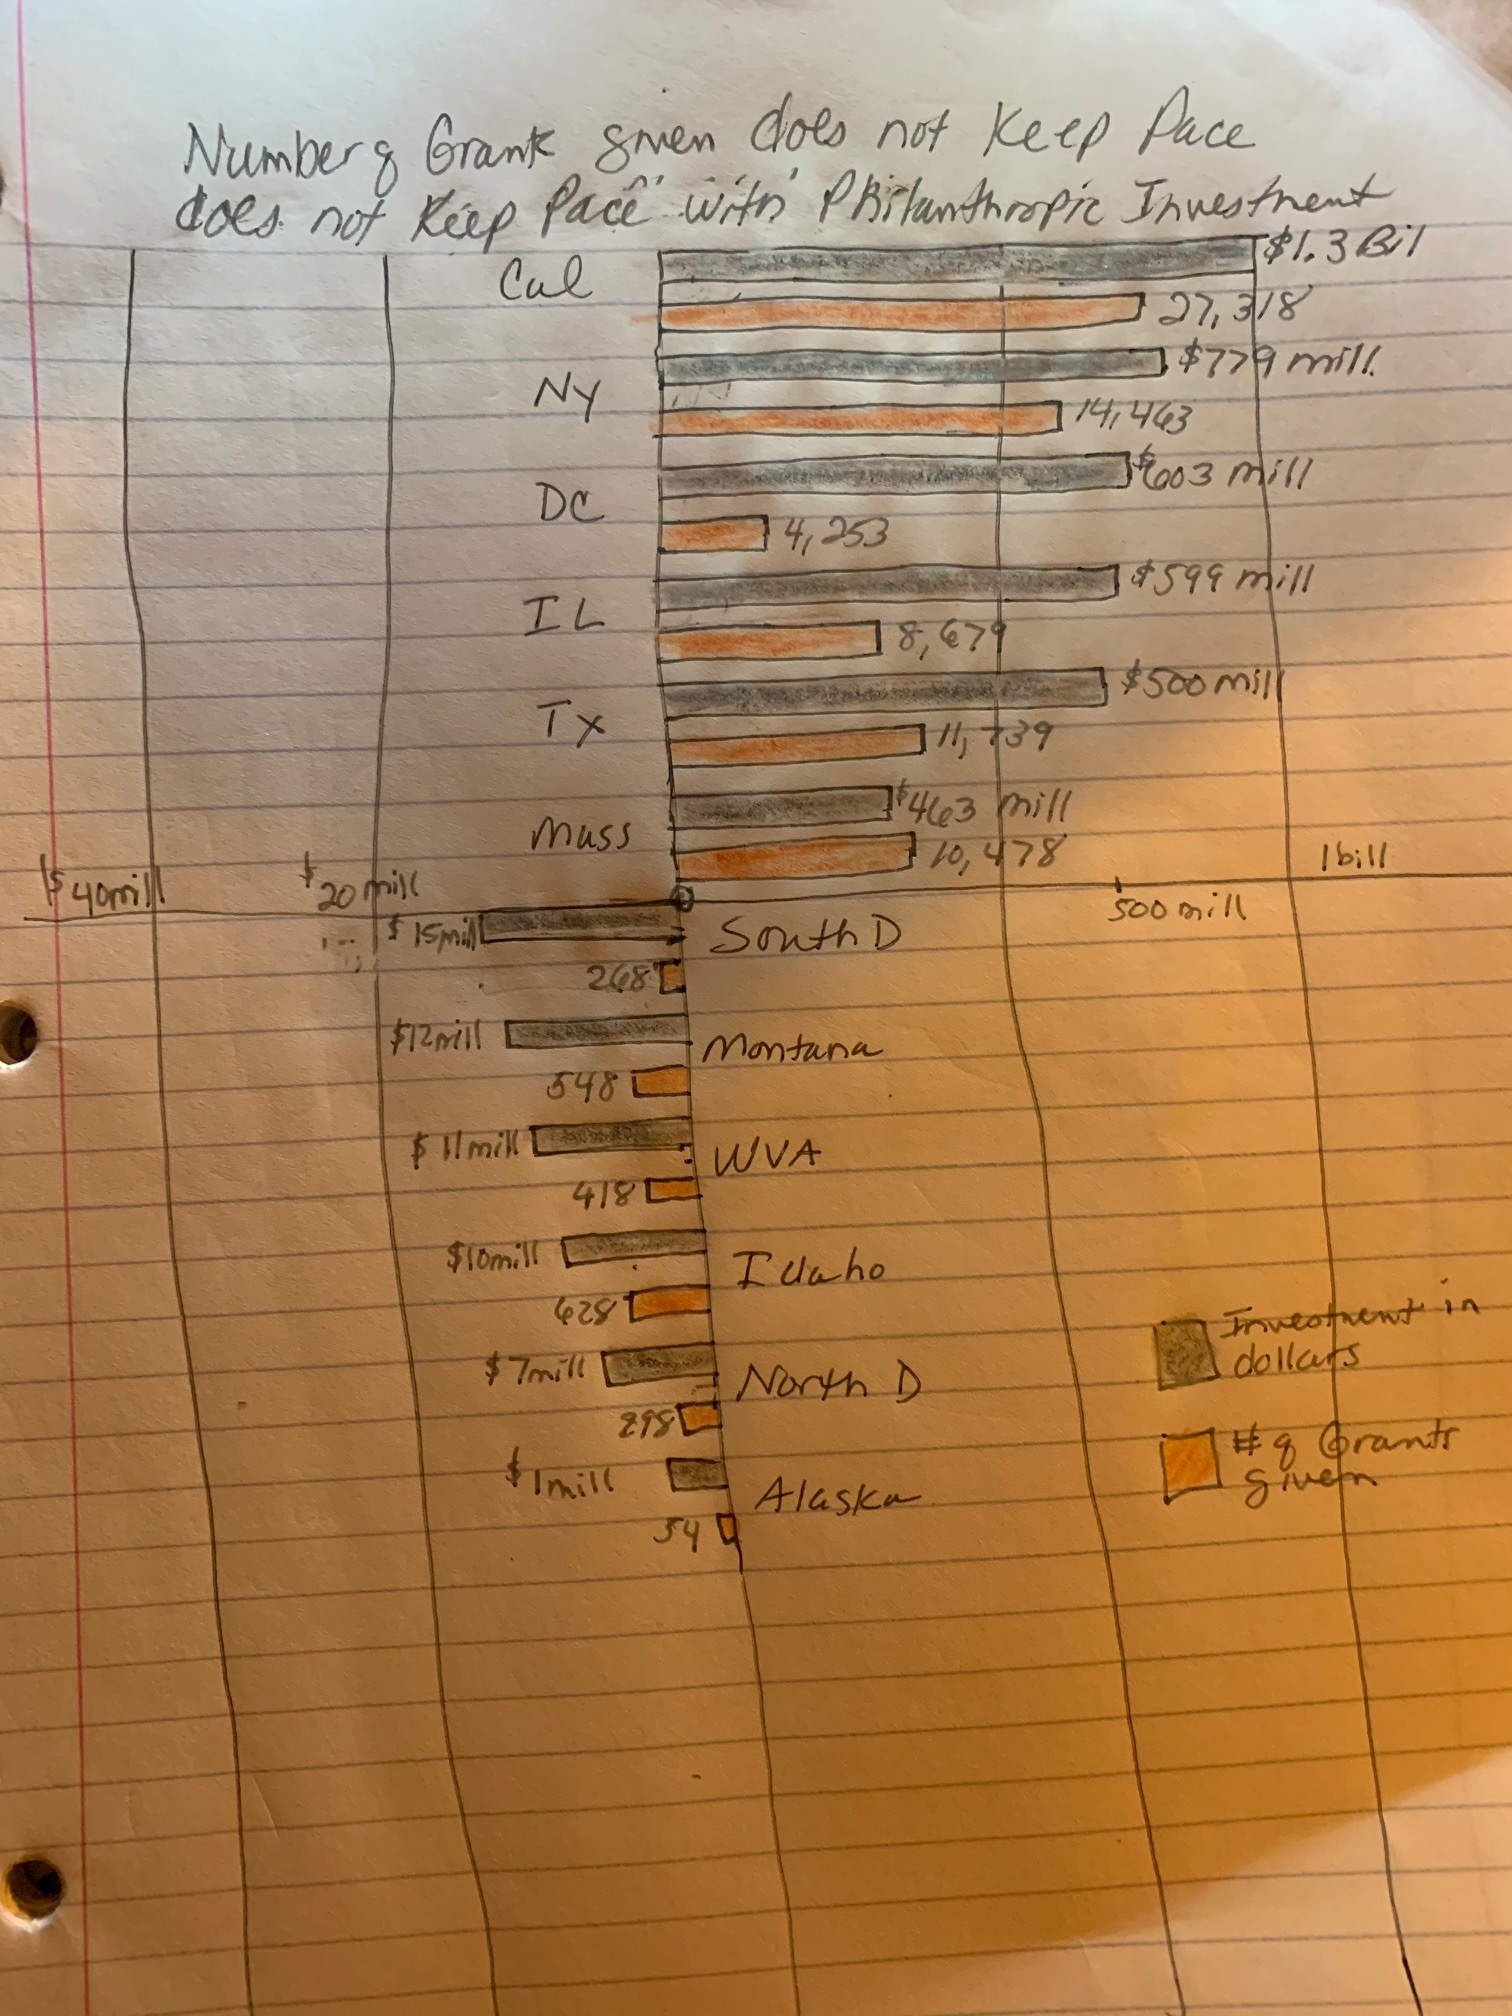 Number of Grants given does not Keep Pace
does not Keep Pace with Philanthropic Investment
Cal
$1.3 Bil
27,318
NY
$779 mill.
14,463
DC
$603 mill
4,253
IL
$599 mill
8,679
TX
$500 mill
11,739
Mass
$463 mill
10,478
$40mill
$20 mill
500 mill
1 bill
$15mill
South D
268
$12mill
Montana
548
$11mill
WVA
418
$10mill
Idaho
628
$7mill
North D
298
$1mill
Alaska
54
Investment in
dollars
# of Grants
given